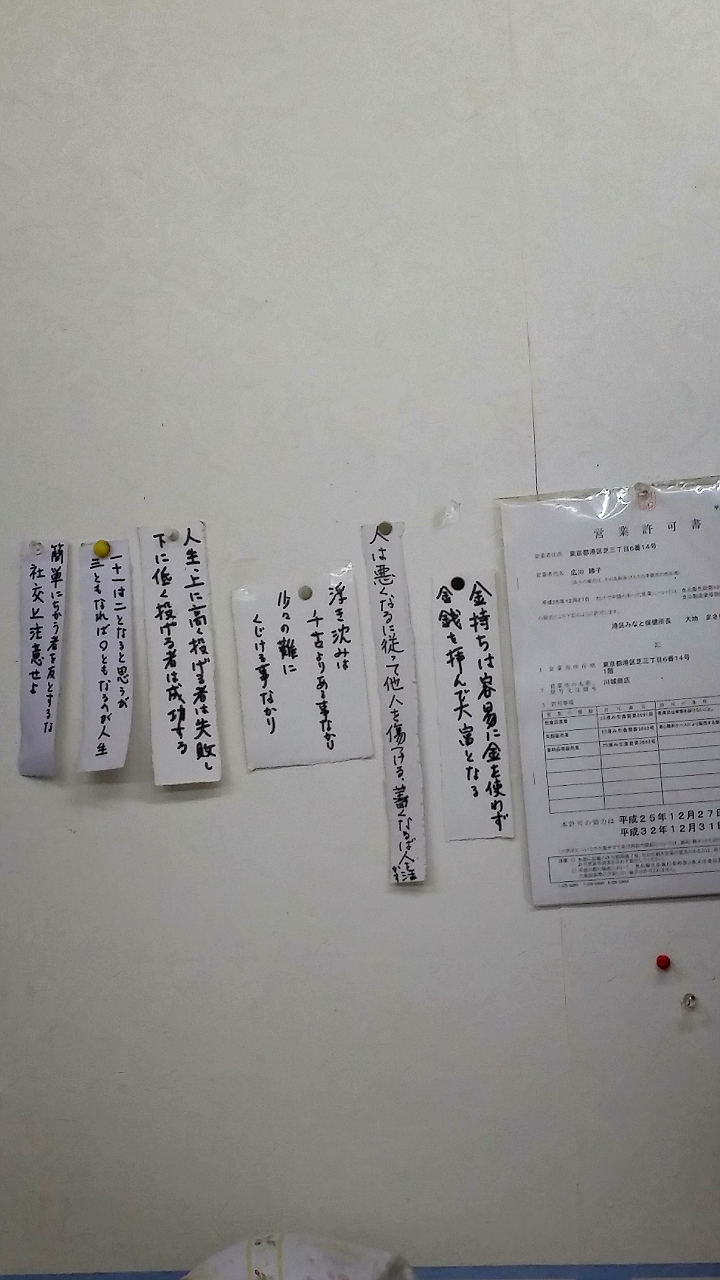 金持ちは容易に金を使わず
金銭を拝んで大富となる
人は悪くなるに従って他人を傷つける、善くなるほど人を活かす
浮き沈みは
千古よりある事なり
少々の難に
くじける事なかり
人生、上に高く投げる者は失敗し
下に低く投げる者は成功する
一+一は二となると思うが
三ともなれば0ともなるのが人生
簡単にちかう者を友とするな
社交上注意せよ
営業許可書
営業者住所 東京都港区芝三丁目6番14号
営業者氏名 広川 勝子
平成25年12月27日
港区みなと保健所長 大地
記
1 営業所所在地 東京都港区芝三丁目6番14号
1階
川城商店
3 許可事項
営業の種類 許可番号 許可の条件
本許可の効力は 平成25年12月27日
平成32年12月31日